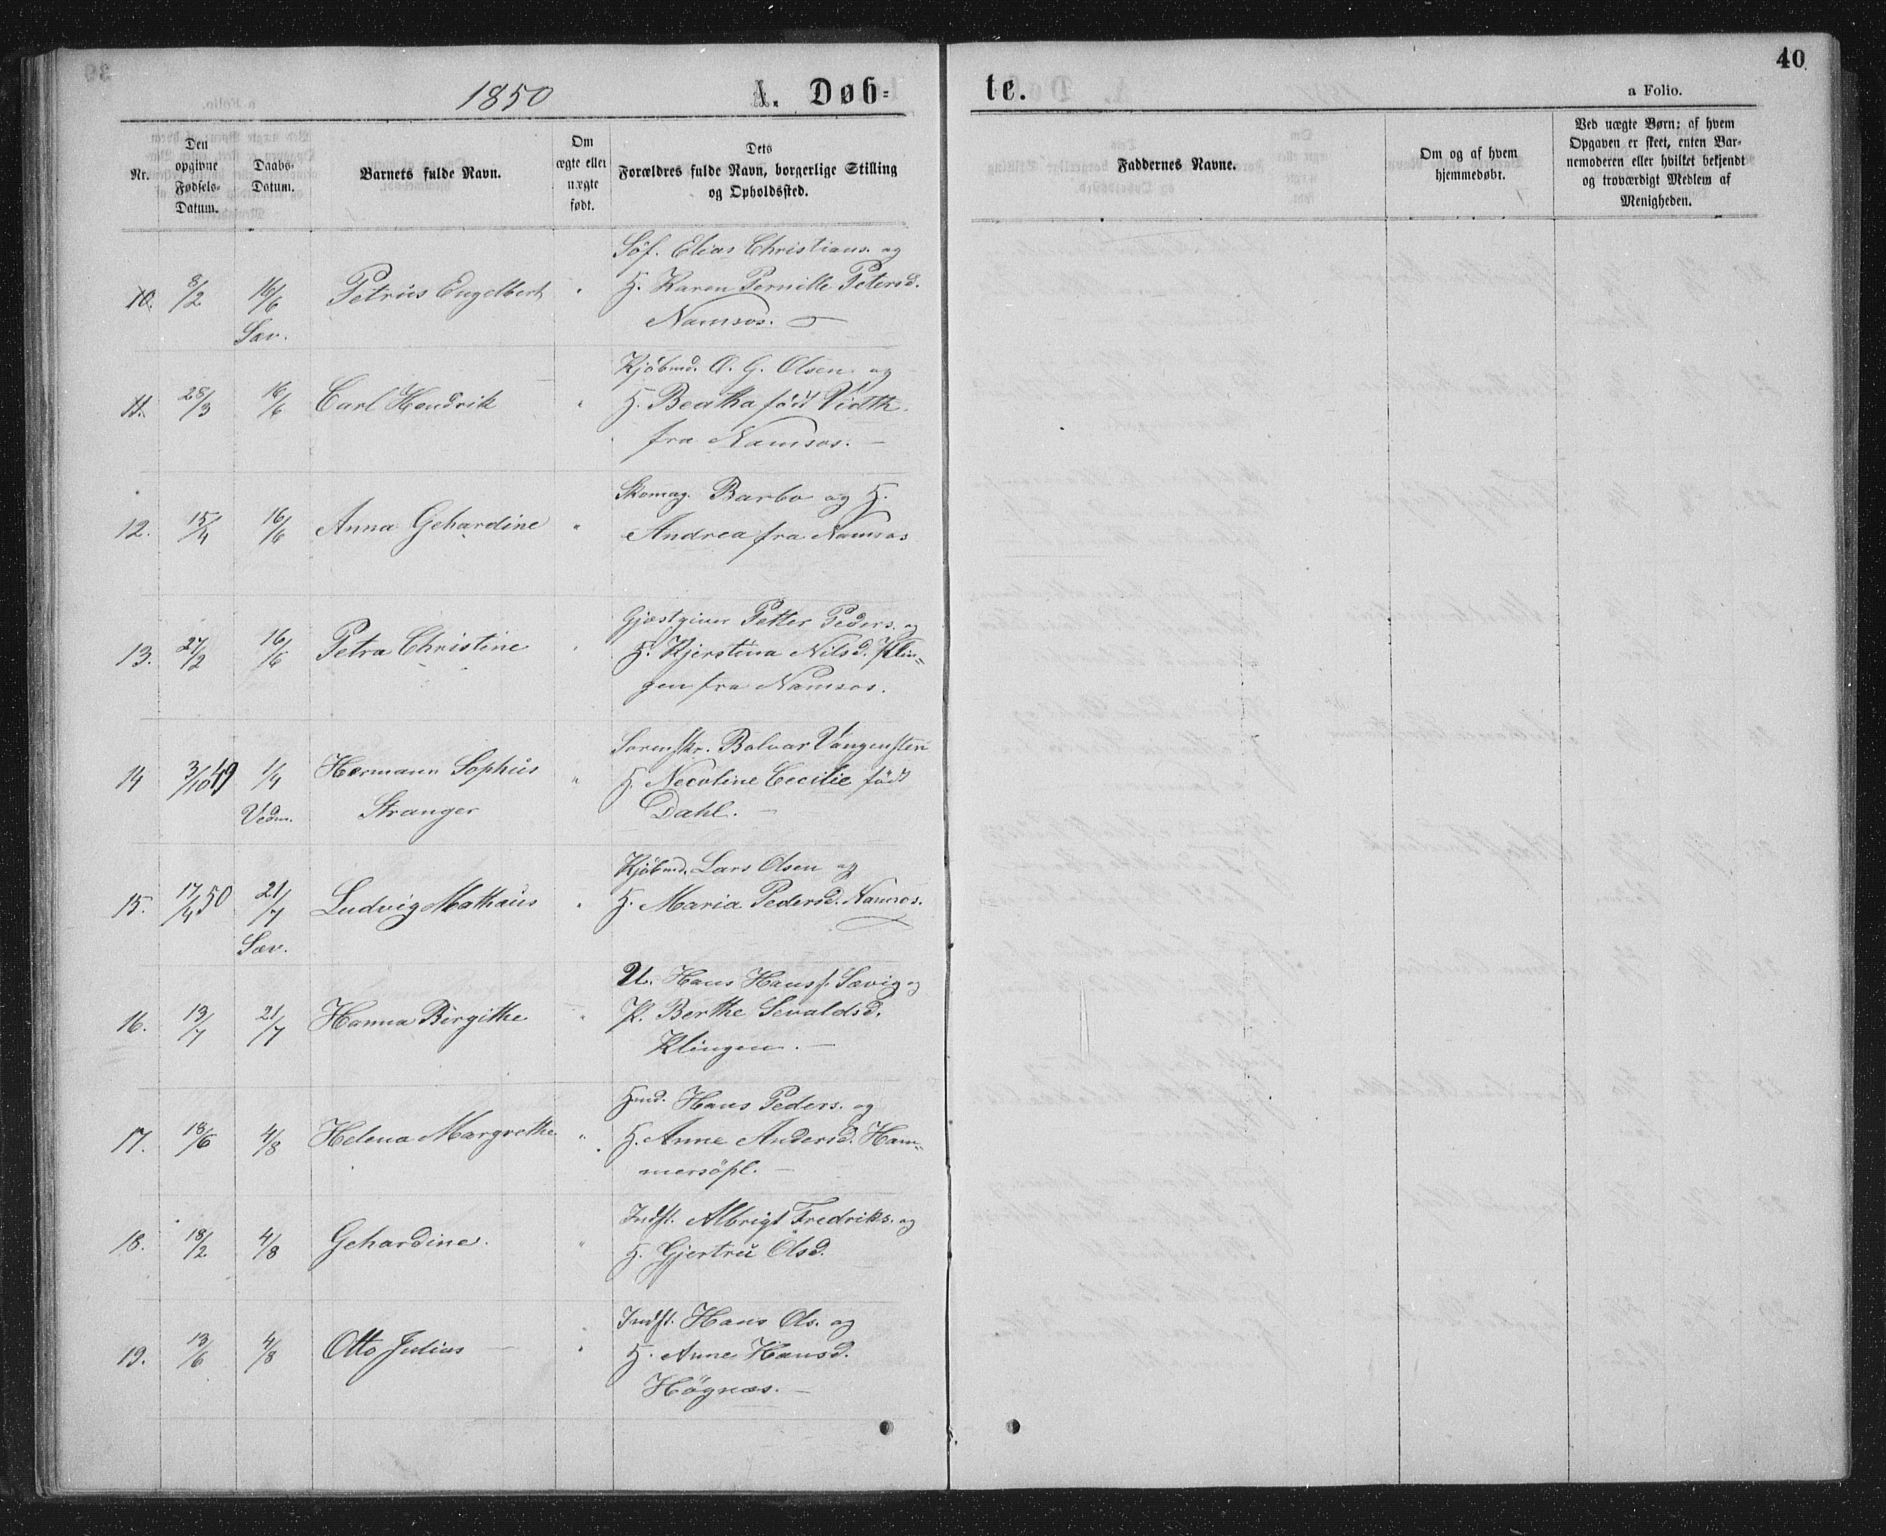 1850
A. Døb-
te.
40
a Folio.
Nr.
Den opgivne Fødsels-Datum.
Daabs-Datum.
Barnets fulde Navn.
Om ægte eller uægte født.
Dets
Forældres fulde Navn, borgerlige Stilling
og Opholdssted.
Faddernes Navne.
Om og af hvem
hjemmedøbt.
Ved uægte Børn: af hvem
Opgaven er skeet, enten Bar-
nemoderen eller hvilket bekjendt
og troværdigt Medlem af
Menigheden.
Søf. Elias Christians. og
10. 8/2 16/6 Petrus Engelbert " H. Karen Pernille Petersd.
Sæv. Namsos.
Kjöbmd. O. G. Olsen og
11. 28/3 16/6 Carl Hendrik " H. Beatha født
fra Namsos. —
Skomag. Barbo og H.
12. 15/4 16/6 Anna Gehardine " Andrea fra Namsos
Gjæstgiver Petter Peders. og
13. 27/2 16/6 Petra Christine " H. Kjerstina Nilsd. Klin-
gen fra Namsos.
Sorenskr. Bolvar Vangensten
14 3/10 49 1/4 Hermann Sophus " H. Necoline Cecilie født
Vedm. Stranger Dahl. —
Kjöbmd. Lars Olsen og
15. 17/4 50 21/7 Ludvig Mathæus " H. Maria Pedersd. Namsos.
Sæv.
U. Hans Hanss. Sævig og
16. 13/7 21/7 Hanna Birgithe " P. Berthe Sevaldsd.
Klingen. —
Hmd. Hans Peders. og
17. 18/6 4/8 Helena Margrethe " H. Anne Andersd. Ham-
mersöpl. —
Indst. Albrigt Fredriks. og
18. 18/2 4/8 Gehardine. " H. Gjertru Olsd.
Indst. Hans Ols. og
19. 13/6 4/8 Otto Julius — " H. Anne Hansd.
Høgnæs. —